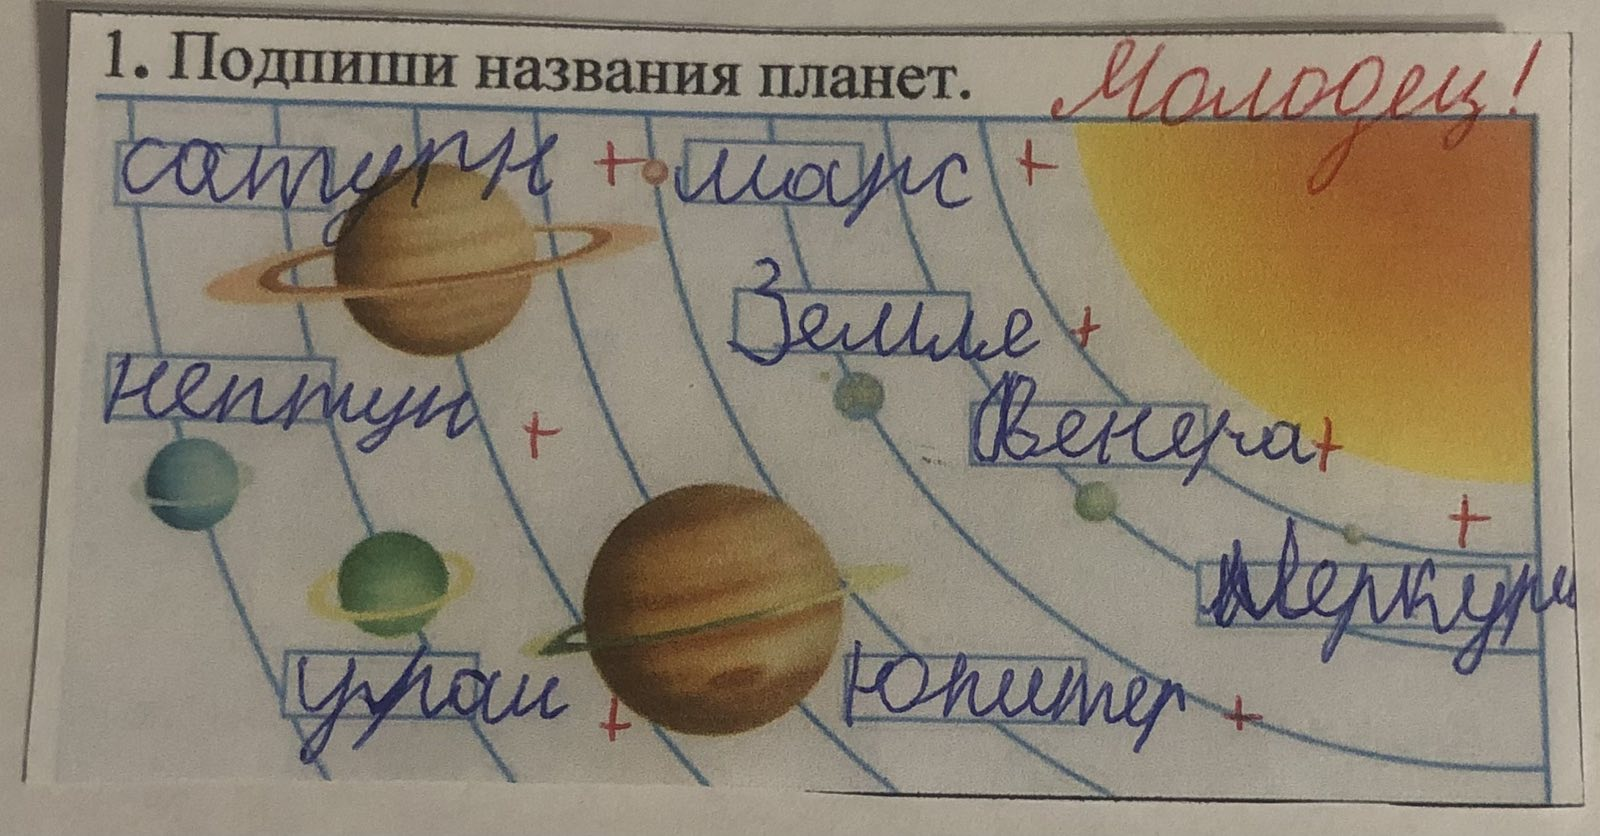 1. Подпиши названия планет.
Молодец!
сатурн + марс +
Земле +
нептун +
Венера +
+
меркури
уран +
Юпитер +